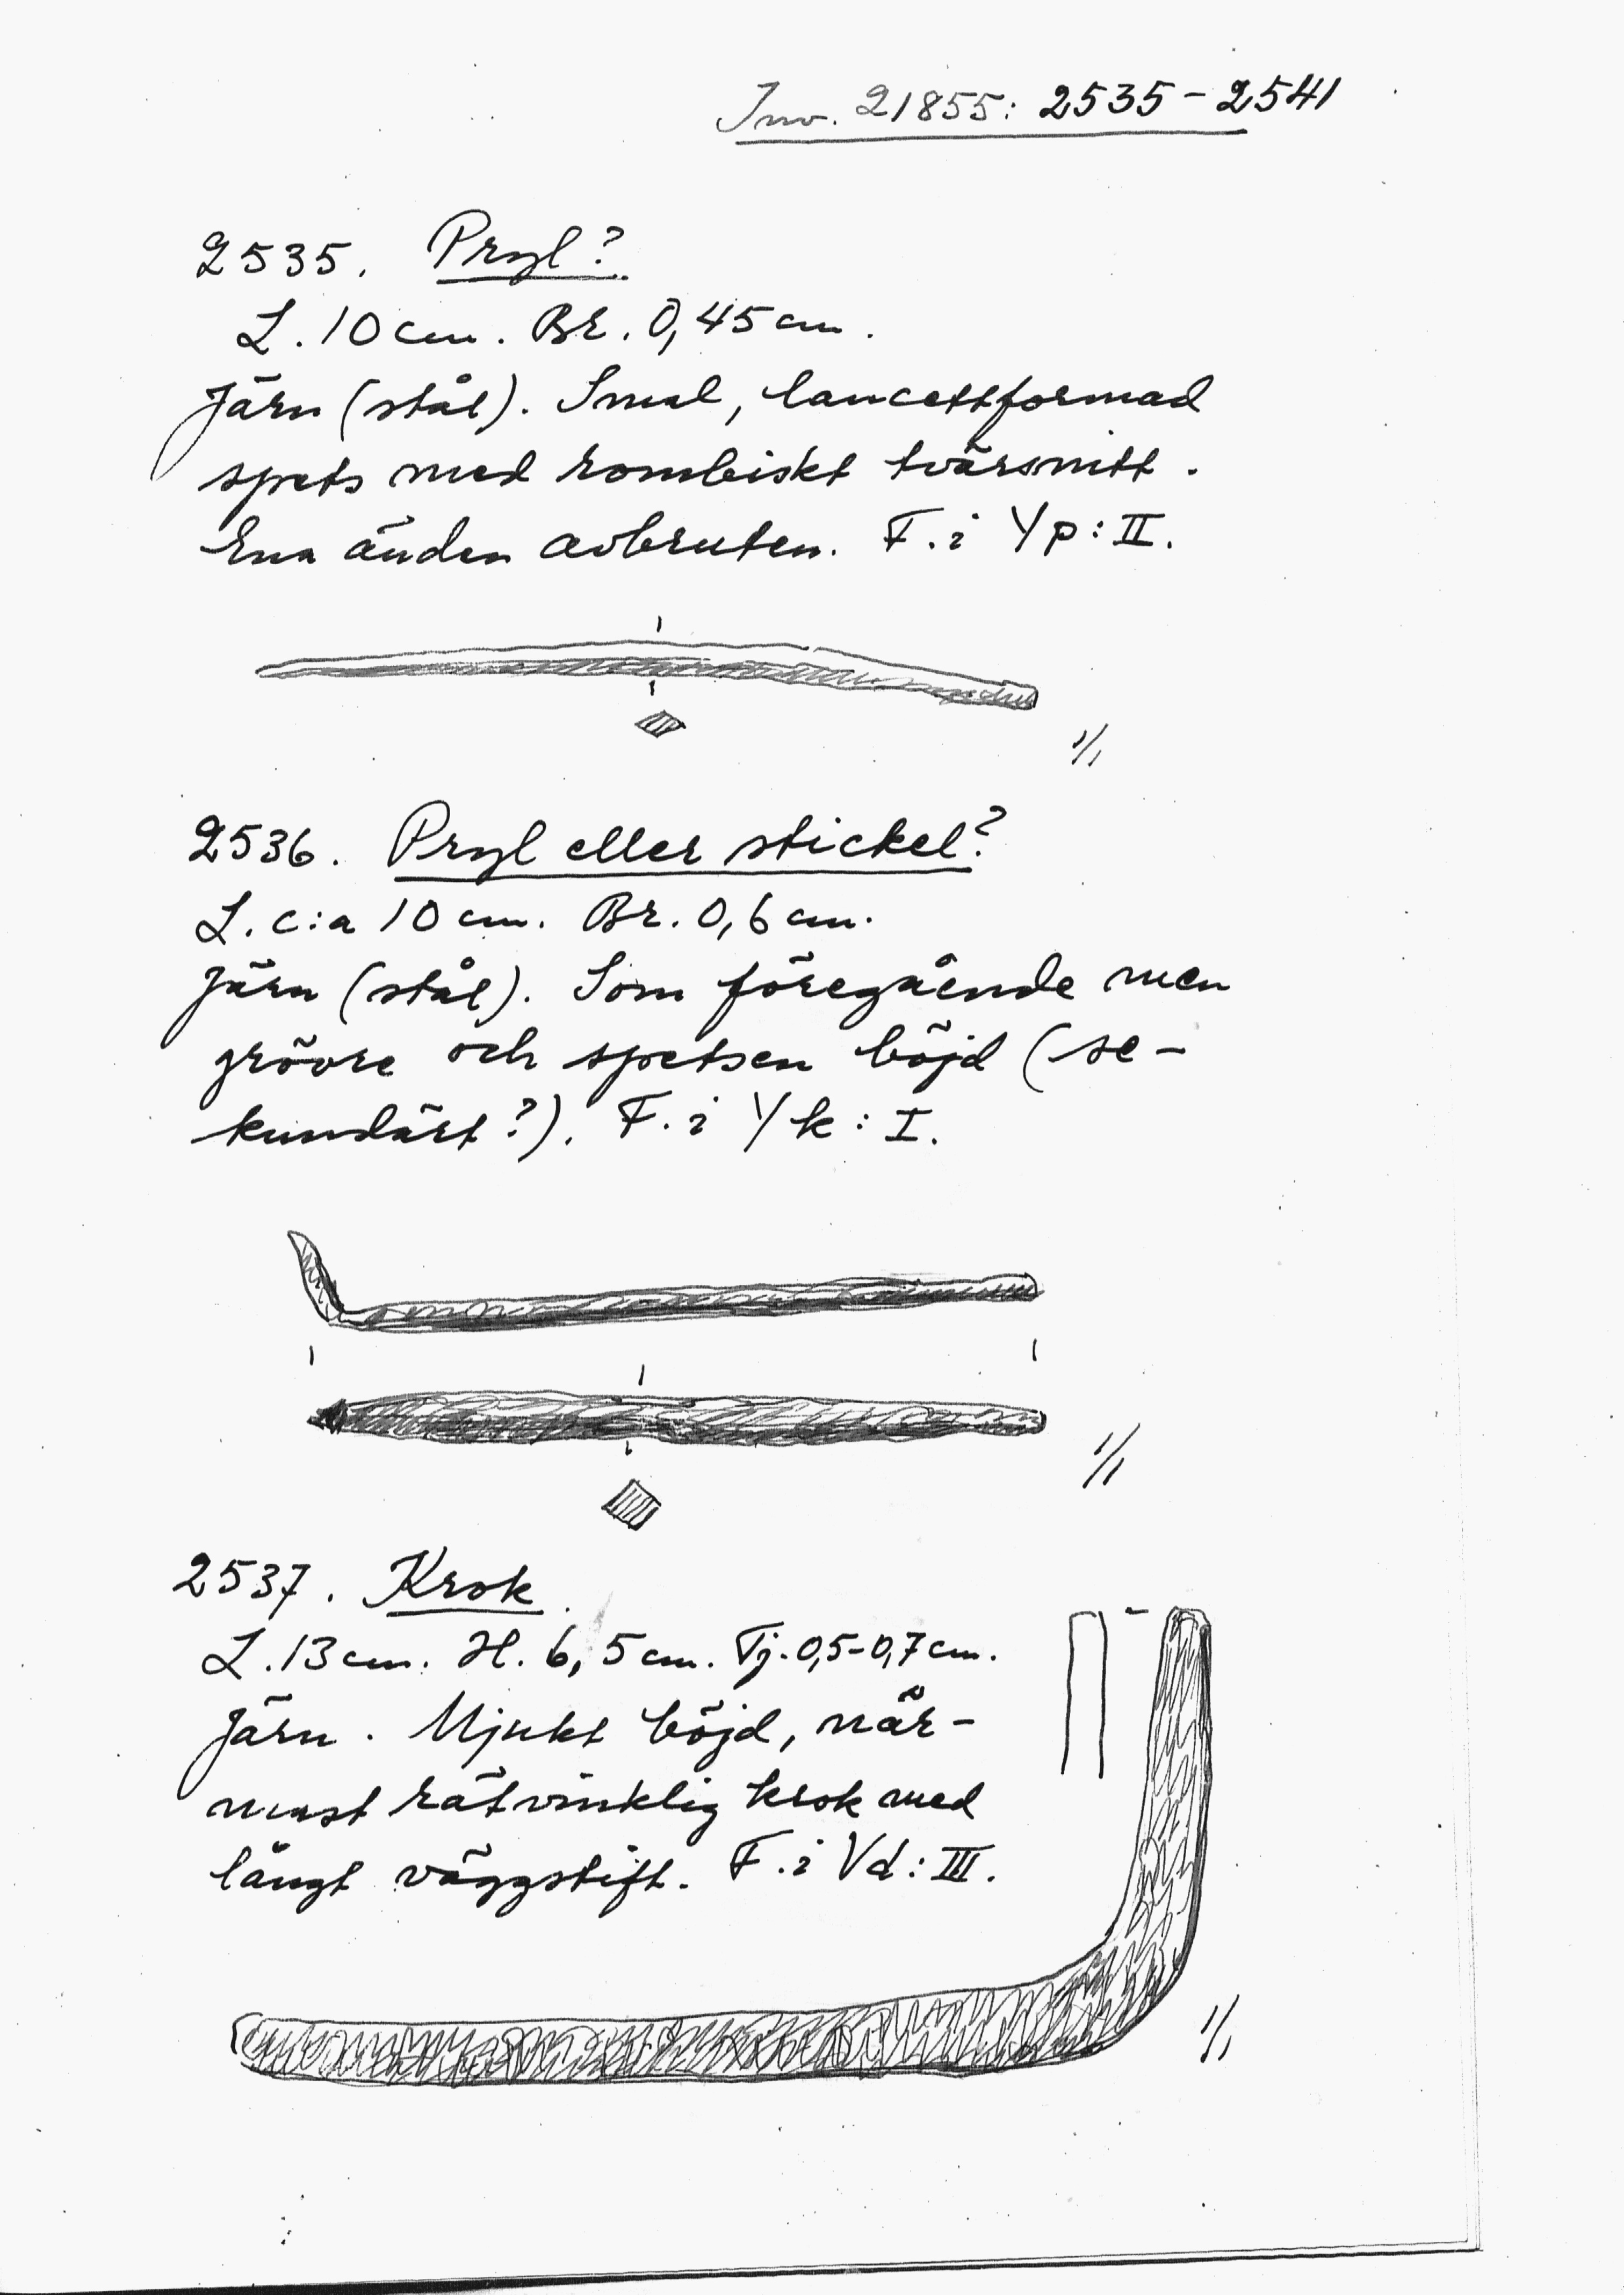 Inv. 21855: 2535-2541
2535. Pryl?
L. 10 cm. Br. 0,45 cm.
Järn (stål). Smal, lancettformad
spets med rombiskt tvärsnitt.
Ena änden avbruten. F. i Yp: II.
1/1
2536. Pryl eller stickel?
L. c:a 10 cm. Br. 0,6 cm.
Järn (stål). Som föregående men
grövre och spetsen böjd (se-
kundärt?). F. i Yk: I.
1/1
2537. Krok.
L. 13 cm. H. 6,5 cm. Tj. 0,5-0,7 cm.
Järn. Mjukt böjd, när-
mast rätvinklig krok med
långt väggstift. F. i Vd: III.
1/1